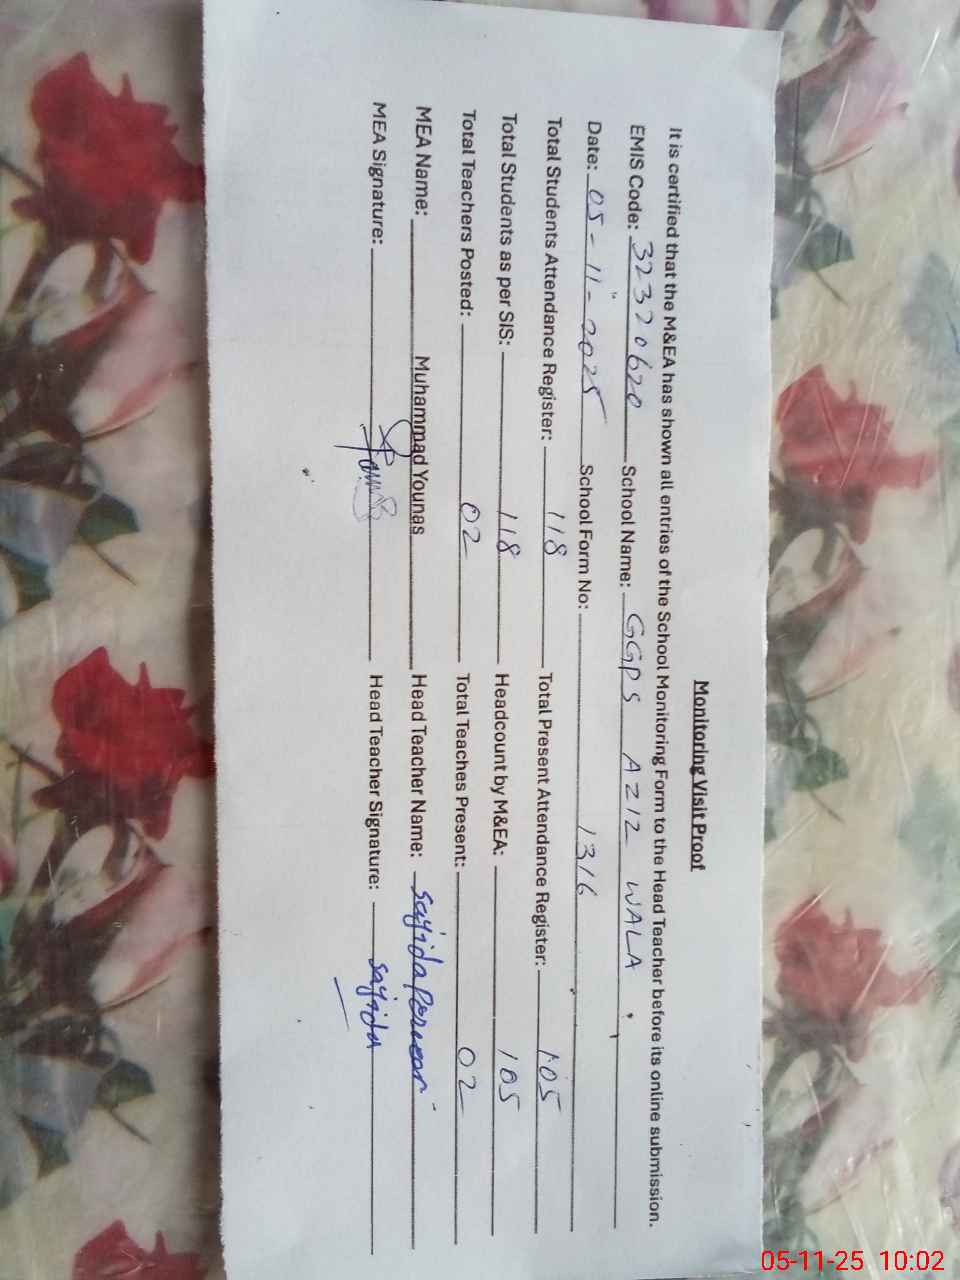 Monitoring Visit Proof
It is certified that the M&EA has shown all entries of the School Monitoring Form to the Head Teacher before its online submission.
EMIS Code: 32320620 School Name: GGPS AZIZ WALA
Date: 05-11-2025 School Form No: 1316
Total Students Attendance Register: 118 Total Present Attendance Register: 105
Total Students as per SIS: 118 Headcount by M&EA: 105
Total Teachers Posted: 02 Total Teaches Present: 02
MEA Name: Muhammad Younas Head Teacher Name: Sajida Perveen
MEA Signature: Head Teacher Signature: Sajida
05-11-25 10:02